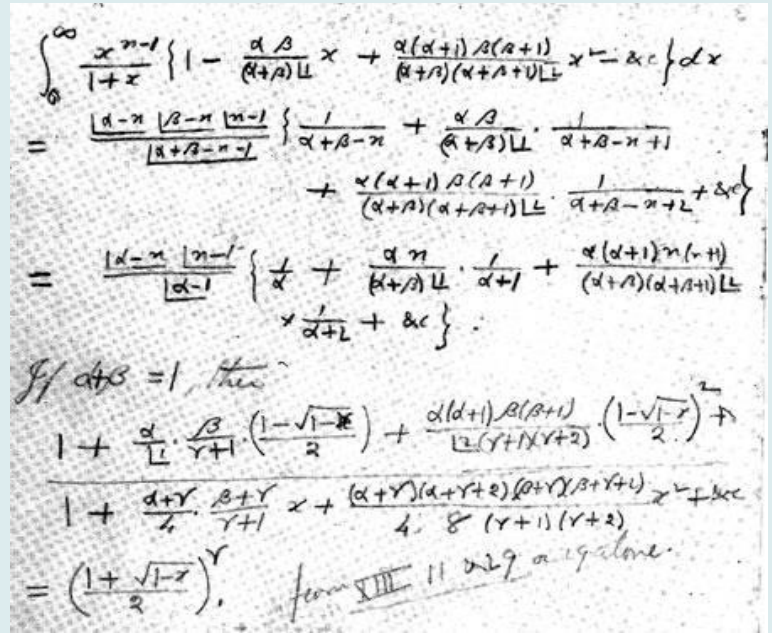 ∫₀^∞ x^{n-1}/(1+x) {1 - αβ/((α+β)|1) x + α(α+1)β(β+1)/((α+β)(α+β+1)|2) x² - &c} dx
= |α-n |β-n |n-1 / |α+β-n-1 {1/(α+β-n) + αβ/((α+β)|1) · 1/(α+β-n+1)
+ α(α+1)β(β+1)/((α+β)(α+β+1)|2) · 1/(α+β-n+2) + &c}
= |α-n |n-1 / |α-1 {1/α + αn/((α+β)|1) · 1/(α+1) + α(α+1)n(n+1)/((α+β)(α+β+1)|2)
× 1/(α+2) + &c}.
If α+β = 1, then
1 + α/|1 · β/(γ+1) · ((1-√(1-x))/2) + α(α+1)β(β+1)/(|2(γ+1)(γ+2)) · ((1-√(1-x))/2)² +
1 + (α+γ)/4 · (β+γ)/(γ+1) x + (α+γ)(α+γ+2)(β+γ)(β+γ+2)/(4. 8 (γ+1)(γ+2)) x² + &c
= ((1+√(1-x))/2)^γ. from XIII 11 19 alone.